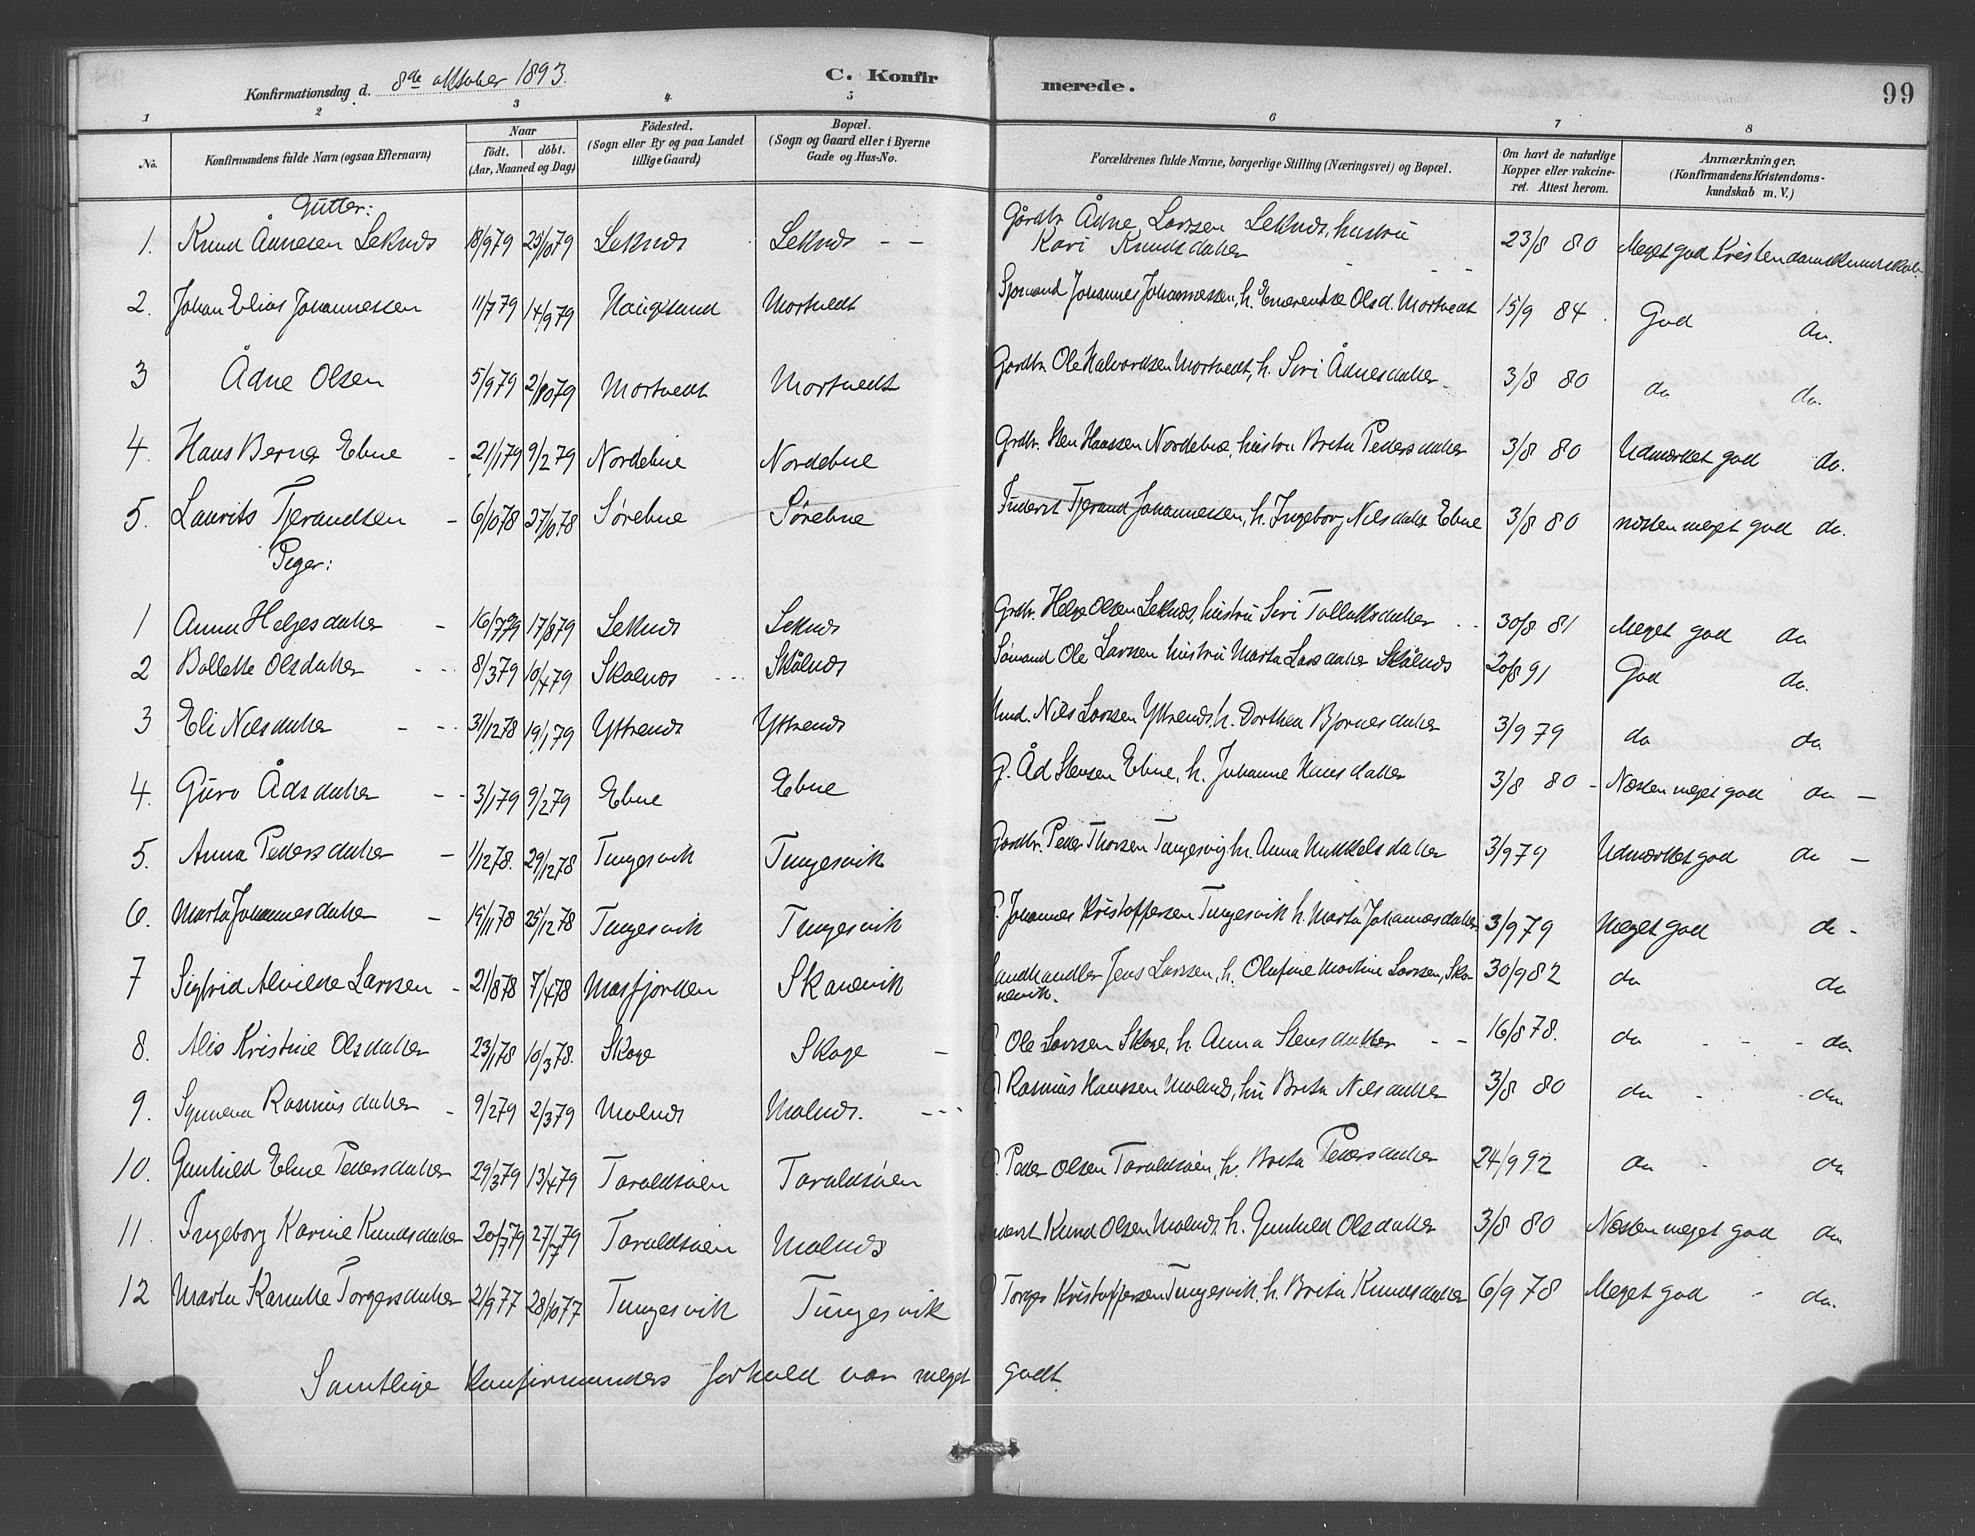 Konfirmationsdag d. 8de oktober 1893.
C. Konfir
merede.
99
1 2 3 4 5 6 7 8
No.
Konfirmandens fulde Navn (ogsaa Efternavn)
Naar
födt. döbt.
(Aar, Maaned og Dag)
Födested.
(Sogn eller By og paa Landet
tillige Gaard)
Bopæl.
(Sogn og Gaard eller i Byerne
Gade og Hus-No.
Forældrenes fulde Navne, borgerlige Stilling (Næringsvei) og Bopæl.
Om havt de naturlige
Kopper eller vakcine-
ret. Attest herom.
Anmærkninger.
(Konfirmandens Kristendoms-
kundskab m. V.)
Gutter:
1. Knud Ådnesen Leknæs 18/9 79 25/10 79 Leknæs Leknæs - - Gårdbr. Ådne Larssen Leknæs, hustru
Kari Knudsdatter 23/8 80 Meget god Kristendomskundskab
2. Johan Elias Johannessen 11/7 79 14/9 79 Haugesund Mortvedt Sjømand Johannes Johannessen, h. Emerentse Olsd. Mortvedt 15/9 84 God do.
3 Ådne Olsen 5/9 79 2/10 79 Mortvedt Mortvedt Gardbr. Ole Halvardsen Mortvedt, h. Siri Ådnesdatter 3/8 80 do do.
4. Hans Berner Ebne - 21/1 79 9/2 79 Nordebne Nordebne Grdbr. Sten Hanssen Nordebnø, hustru Brita Pedersdatter 3/8 80 Udmærket god do.
5. Laurits Tjerandsen - 6/10 78 27/10 78 Sørebne Sørebne Inderst Tjerand Johannessen, h. Ingeborg Nilsdatter Ebne 3/8 80 næsten meget god do.
Piger:
1 Anna Helgesdatter - 16/7 79 17/8 79 Leknæs Leknæs Grdbr. Helge Olsen Leknæs, hustru Siri Tollaksdatter 30/8 81 Meget god do
2 Bollette Olsdatter 8/3 79 10/4 79 Skålnæs Skålnæs Sømand Ole Larssen hustru Marta Larsdatter Skålnæs 20/8 91 God do.
3 Eli Nilsdatter - - 31/12 78 19/1 79 Yttrenæs Yttrenæs Nils Larssen Yttrenæs, h. Dorthea Bjørnesdatter 3/9 79 do do
4. Guro Ådsdatter - - 3/1 79 9/2 79 Ebne Ebne G. Åd Stensen Ebne, h. Johanne Hansdatter 3/8 80 - Næsten meget god do -
5. Anna Pedersdatter - 1/12 78. 29/12 78 Tungesvik Tungesvik Gardbr. Peder Thorsen Tungesvig h. Anna Mikkelsdatter 3/9 79 Udmærket god do -
6. Marta Johannesdatter - 15/11 78 25/12 78 Tungesvik Tungesvik G. Johannes Kristoffersen Tungesvik h. Marta Johannesdatter 3/9 79 Meget god do -
7 Sigfrid Alvilde Larssen - 21/8 78 7/4 78 Masfjorden Skånevik Landhandler Jens Larssen, h. Olufine Martine Larssen, Skå-
nevik. 30/9 82 do do
8. Alis Kristine Olsdatter 23/1 78 10/3 78. Skoge Skoge - Ole Larssen Skoge, h. Anna Stensdatter - - 16/8 78. do do
9. Synneva Rasmusdatter - 9/2 79 2/3 79 Molnæs Molnæs. Rasmus Hanssen Molnæs, hu Brita Nilsdatter 3/8 80 do do
10. Gunhild Ebne Pedersdatter 29/3 79 13/4 79 Taraldsøien Taraldsøien Peder Olsen Taraldsøien, h. Brita Pedersdatter 24/9 92 do do
11. Ingeborg Karine Knudsdatter 20/7 79 27/7 79 Taraldsøien Molnæs Inderst Knud Olsen Molnæs, h. Gunhild Olsdatter 3/8 80 Næsten meget god do
12 Marta Kamilla Torgersdatter 21/9 77 28/10 77 Tungesvik Tungesvik Torger Kristoffersen Tungesvik, h. Brita Knudsdatter 6/9 78 Meget god - do.
Samtlige Konfirmanders forhold var meget godt.